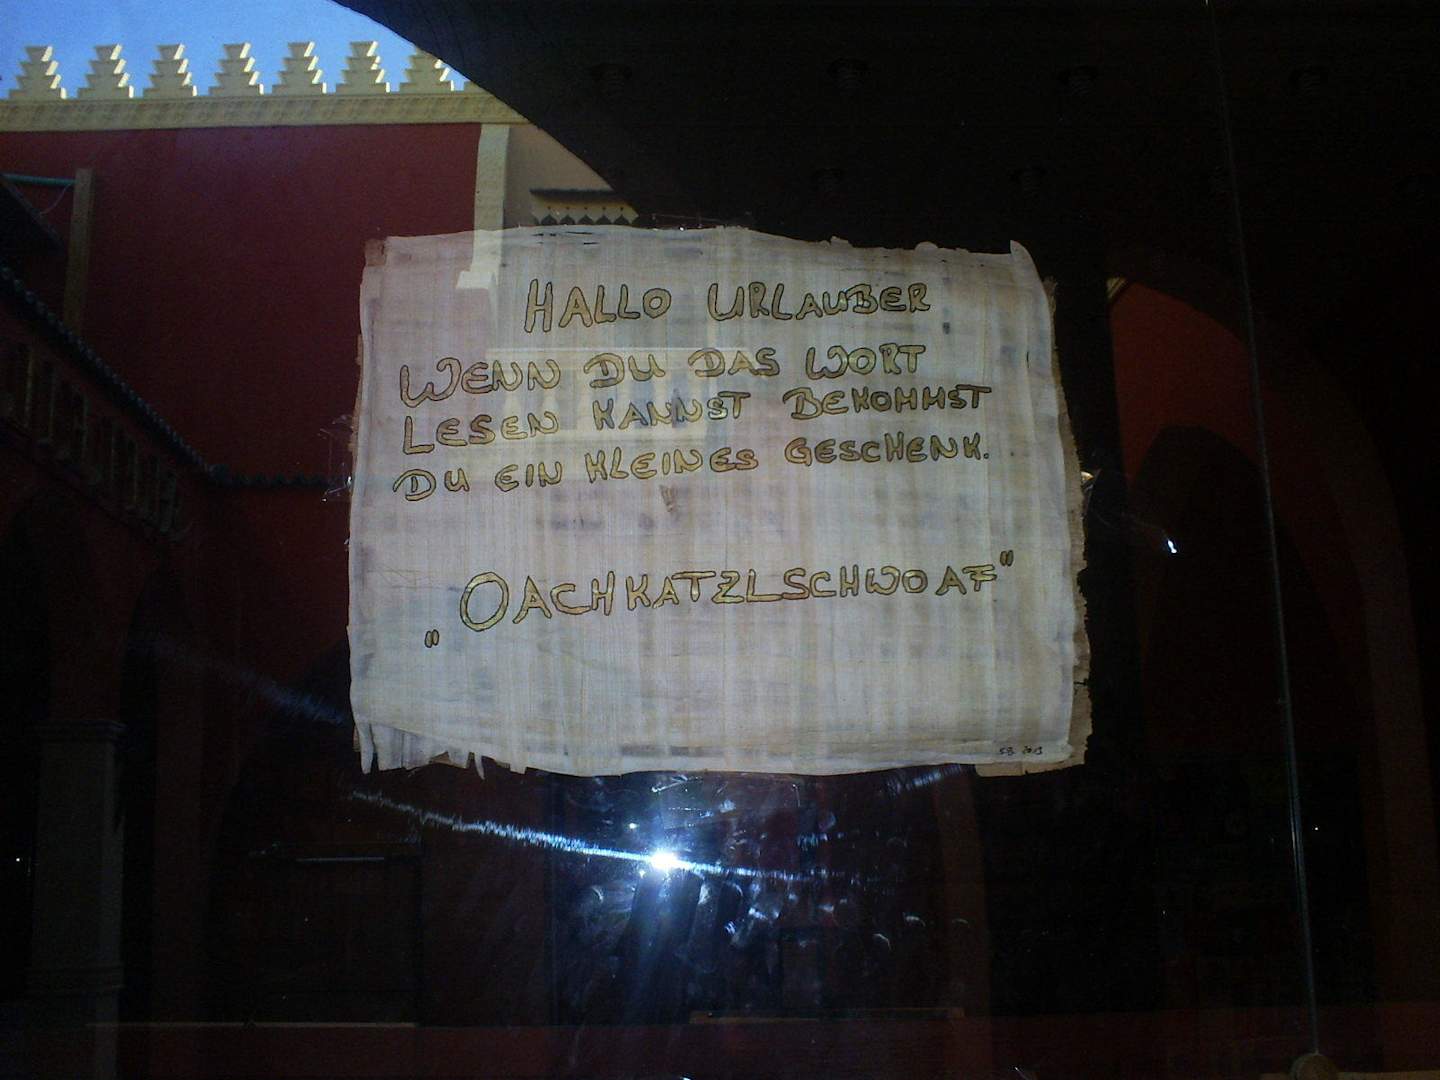 HALLO URLAUBER
WENN DU DAS WORT
LESEN KANNST BEKOMMST
DU EIN KLEINES GESCHENK.
„OACHKATZLSCHWOAF"
SB 2013